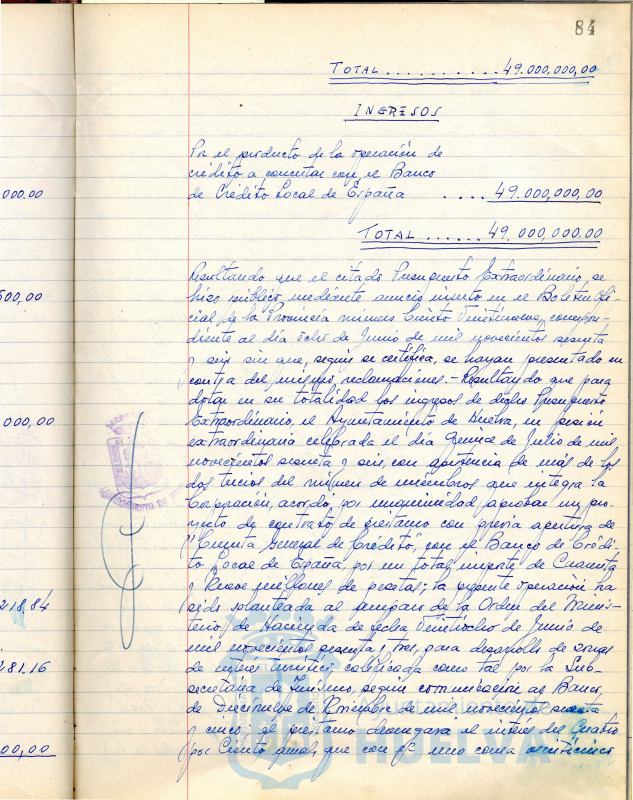 84
TOTAL .......... 49.000,000,00
INGRESOS
Por el producto de la operación de
crédito a concertar con el Banco
de Crédito Local de España .... 49,000,000,00
000.00
TOTAL ...... 49.000,000.00
Resultando que el citado Presupuesto Extraordinario, se
hizo público, mediante anuncio inserto en el Boletín Ofi-
500,00
cial de la Provincia número Ciento Veintinueve, correspon-
diente al día ocho de Junio de mil novecientos sesenta
y seis sin que, según se certifica, se hayan presentado en
contra del mismo, reclamaciones.- Resultando que para
dotar en su totalidad los ingresos de dicho Presupuesto
000,00
Extraordinario, el Ayuntamiento de Huelva, en sesión
extraordinaria celebrada el día Quince de Julio de mil
novecientos sesenta y seis, con asistencia de más de los
dos tercios del número de miembros que integra la
Corporación, acordó, por unanimidad, aprobar un pro-
yecto de contrato de préstamo con previa apertura de
"Cuenta General de Crédito", con el Banco de Crédi-
to Local de España, por un total importe de Cuarenta
y Nueve millones de pesetas; la presente operación ha
218,84
sido solicitada al amparo de la Orden del Minis-
terio de Hacienda de fecha Veintiocho de Junio de
mil novecientos sesenta y tres, para desarrollo de zonas
281.16
de interés turístico, calificada como tal por la Sub-
secretaría de Turismo, según comunicación al Banco,
de Diecinueve de Noviembre de mil novecientos sesenta
y cinco; el préstamo devengará el interés del Cuatro
00,00
por Ciento anual, que con el uno coma
HUELVA